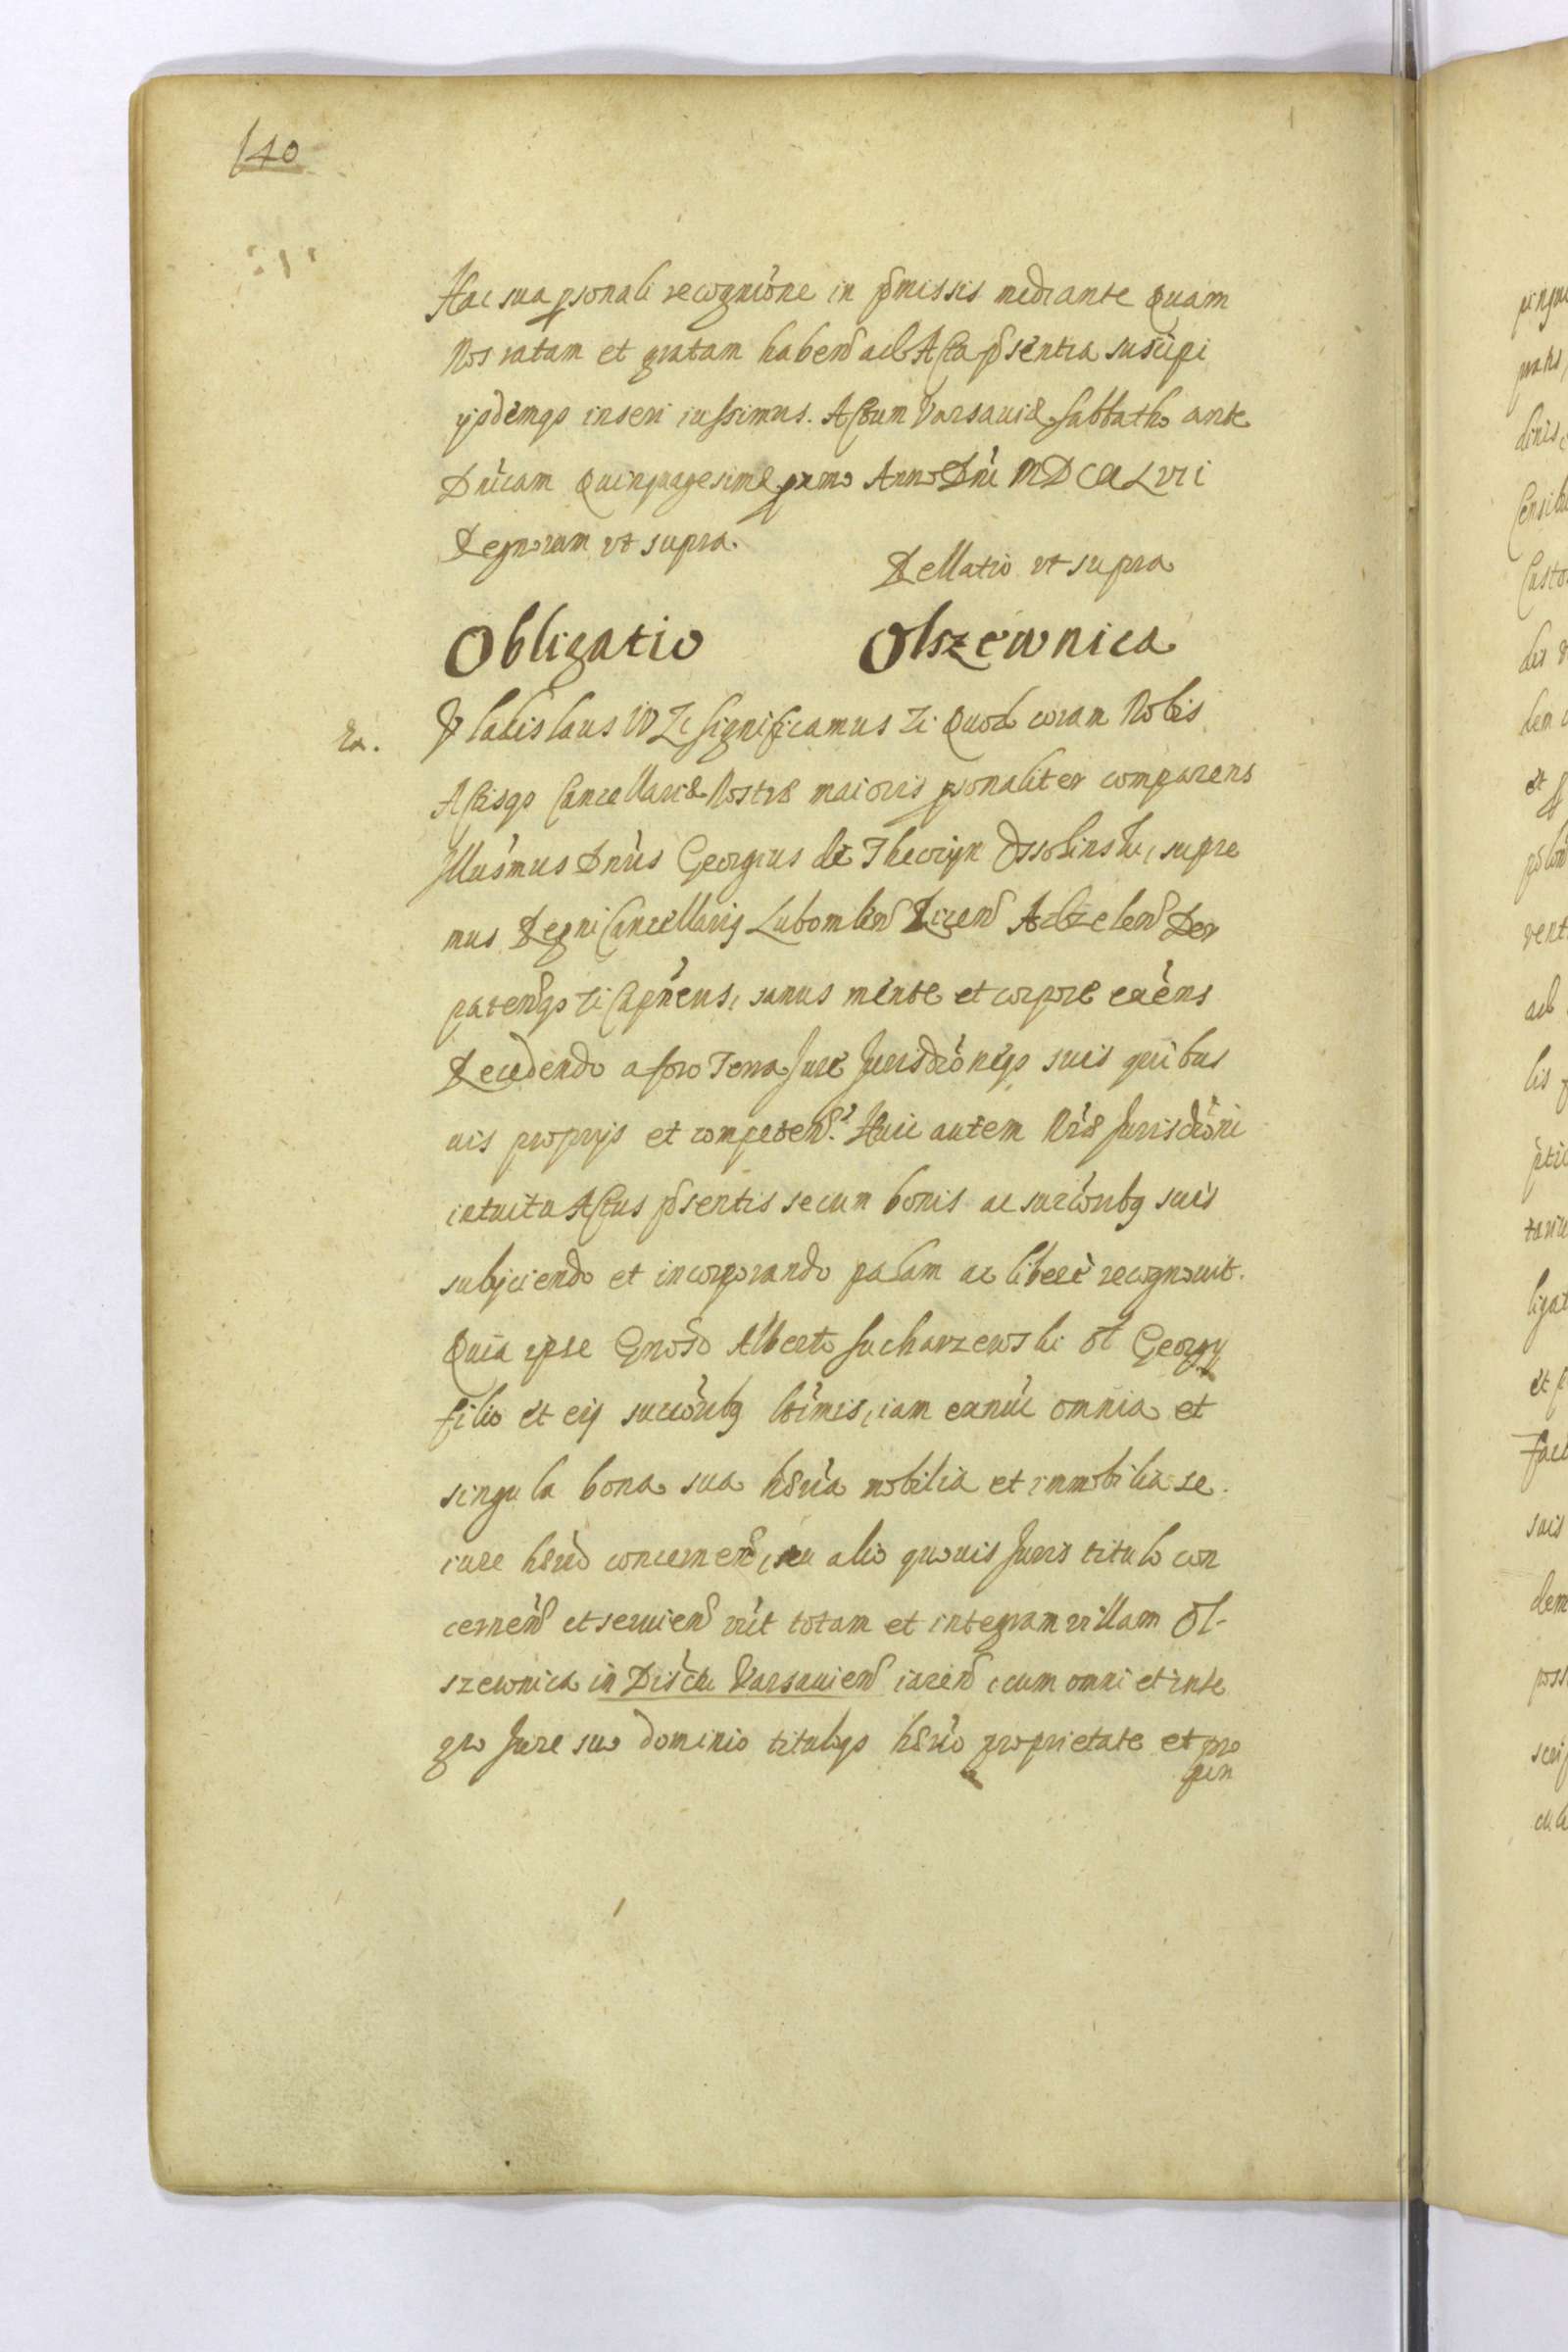 140
Hac sua psonali recognione in pmissis mediante Quam
Nos ratam et gratam habend ad Acta psentia suscipi
ijsdemqs inseri iussimus. Actum Varsauiæ Sabbatho ante
Dnicam Quinquagesimæ primo Anno Dni MDCXLVII
Regnorum vt supra.
Rellatio vt supra
Obligatio Olszewnica
Ra. Vladislaus IV Zc significamus Zc Quod coram Nobis
Actisqs Cancellariæ Nostræ maioris psonaliter comparens
Illusmus Dnus Georgius de Theczyn Ossolinski, supre
mus Regni Cancellarig Lubomlien Ricen Adzelen Der
patenqs Zc Capneus, sanus mente et corpore exens
Recedendo a foro Terra Jure Jurisdioneqs suis quibus
uis proprijs et competen. Huic autem Nræ Jurisdioni
intuitu Actus psentis secum bonis ac succorubg suis
subijciendo et incorporando palam ac libere recognouit.
Quia ipse Gnoso Alberto Sucharzewski ol Georgij
filio et eig succorubg ltimis, iam exnuc omnia et
singula bona sua hæria mobilia et immobilia se
iure hærio concernen, seu alio quouis Juris titulo con
cernen et seruien vut totam et integram villam Ol-
szewnica in Disctu Varsauien iacen, cum omni et inte
gro Jure suo dominio tituloqs hærio proprietate et pro
pin